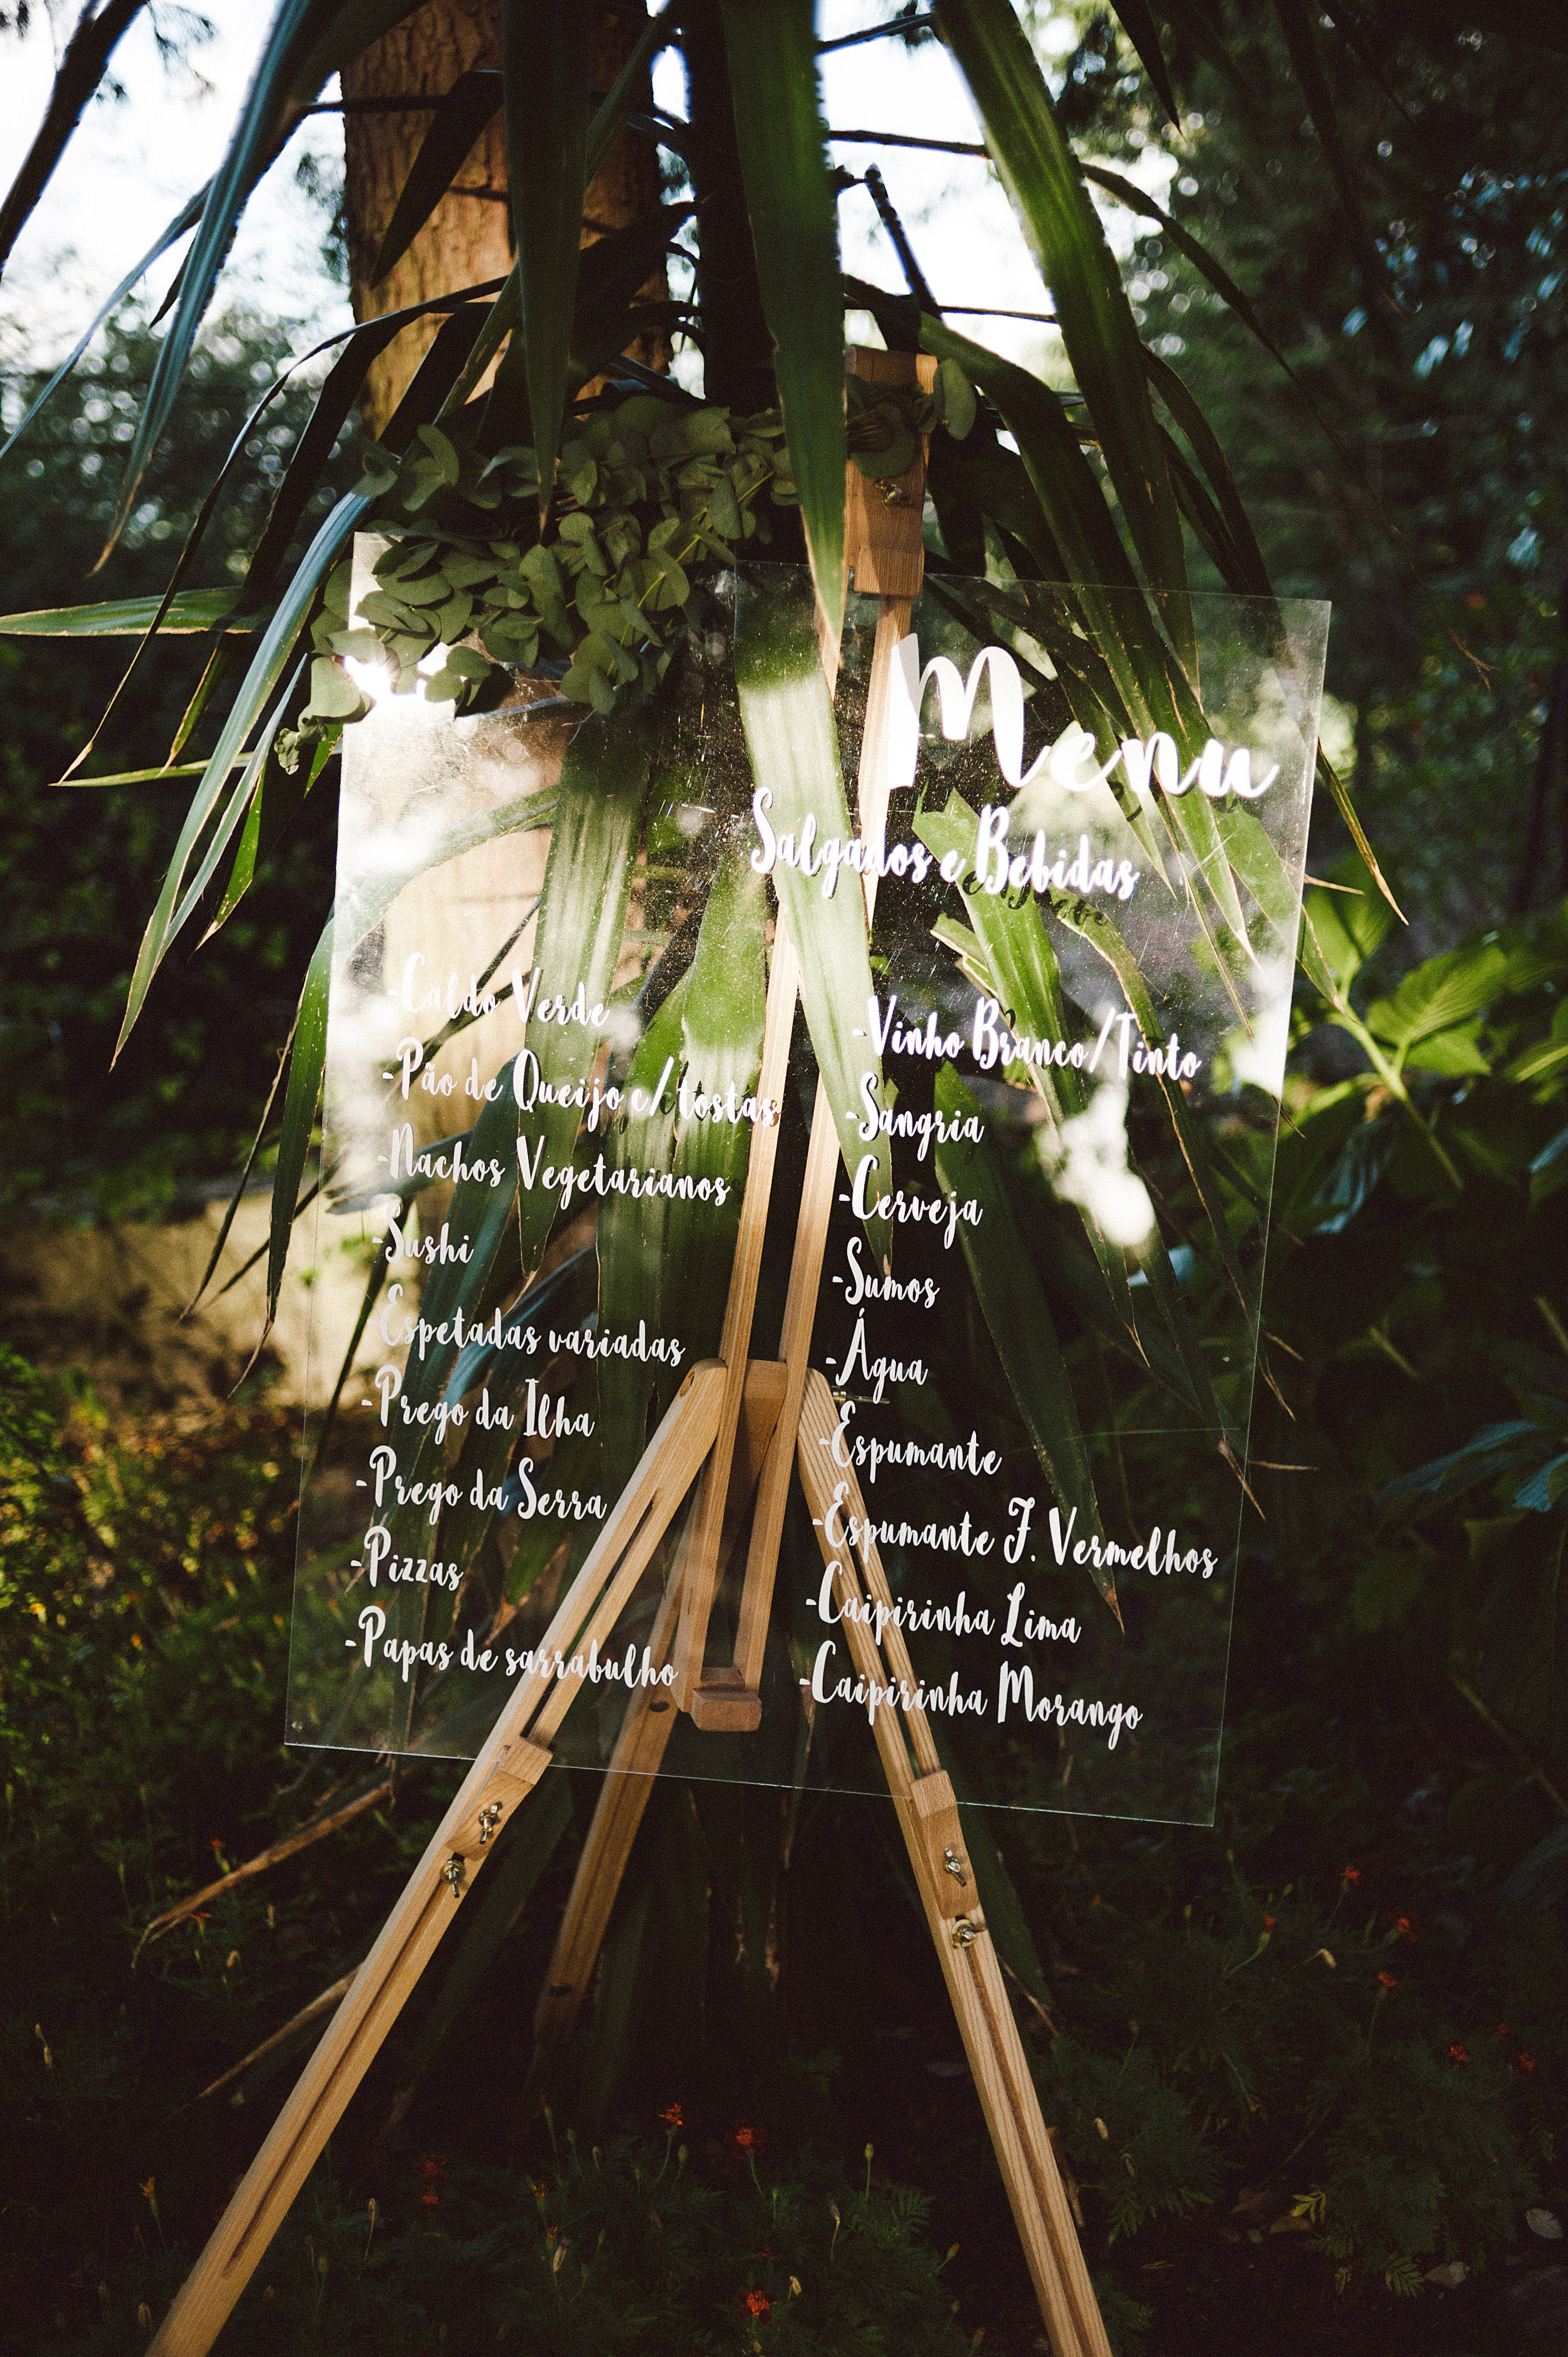 Menu
Salgados e Bebidas
-Caldo Verde
-Pão de Queijo c/ tostas
-Nachos Vegetarianos
-Sushi
-Espetadas variadas
-Prego da Ilha
-Prego da Serra
-Pizzas
-Papas de sarrabulho
-Vinho Branco/Tinto
-Sangria
-Cerveja
-Sumos
-Água
-Espumante
-Espumante F. Vermelhos
-Caipirinha Lima
-Caipirinha Morango